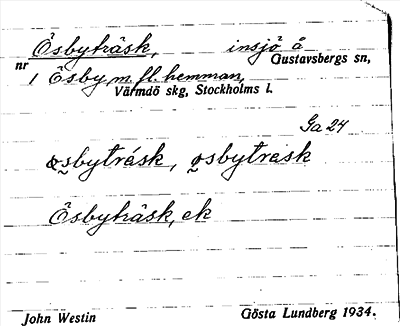 Ösbyträsk, insjö å
nr Gustavsbergs sn,
1 Ösby m. fl. hemman,
Värmdö skg, Stockholms l.
Ga 24
ꝏsbytrásk, o̰sbytresk
Ösbyträsk, ek
John Westin Gösta Lundberg 1934.